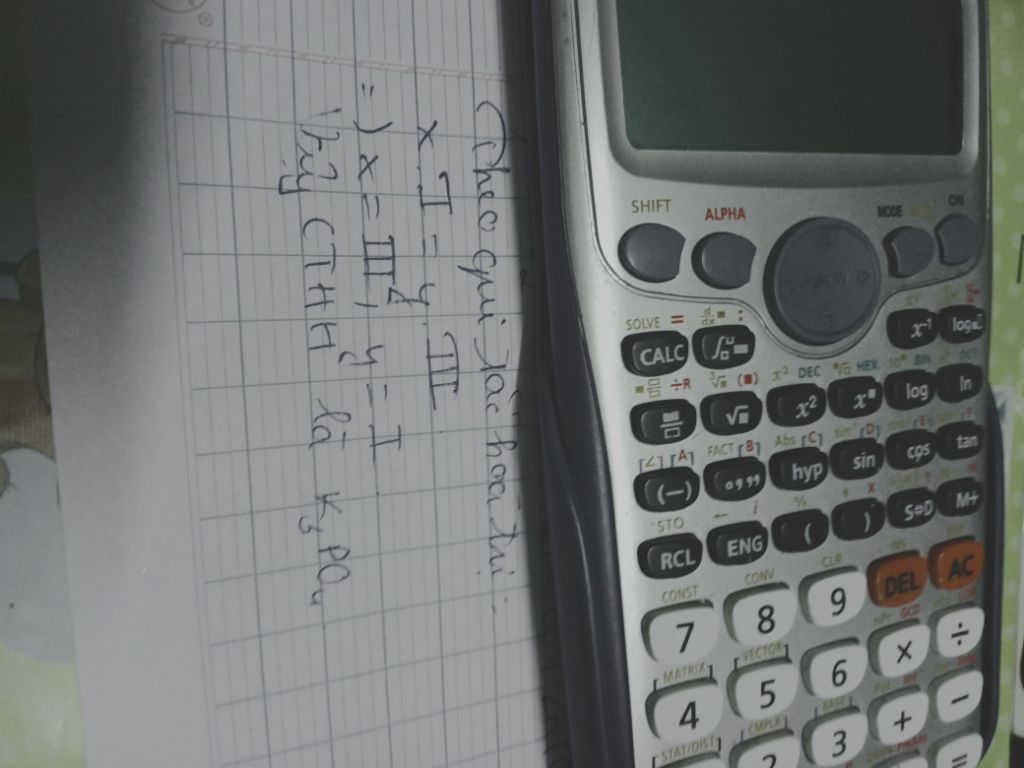 Theo qui tắc hoá trị
x.I = y.III
=) x = III, y = I
Vậy CTHH là K3PO4
SHIFT ALPHA MODE ON
SOLVE = d/dx :
CALC x-1 log
÷R x³ DEC HEX BIN
√ x² x log ln
FACT [B] Abs [C] sin-1 [D]
(−) hyp sin cos tan
STO ← i
RCL ENG ( ) S⇔D M+
CONST CONV CLR
7 8 9 DEL AC
MATRIX VECTOR
4 5 6 × ÷
STAT/DIST CMPLX BASE
2 3 + −
=